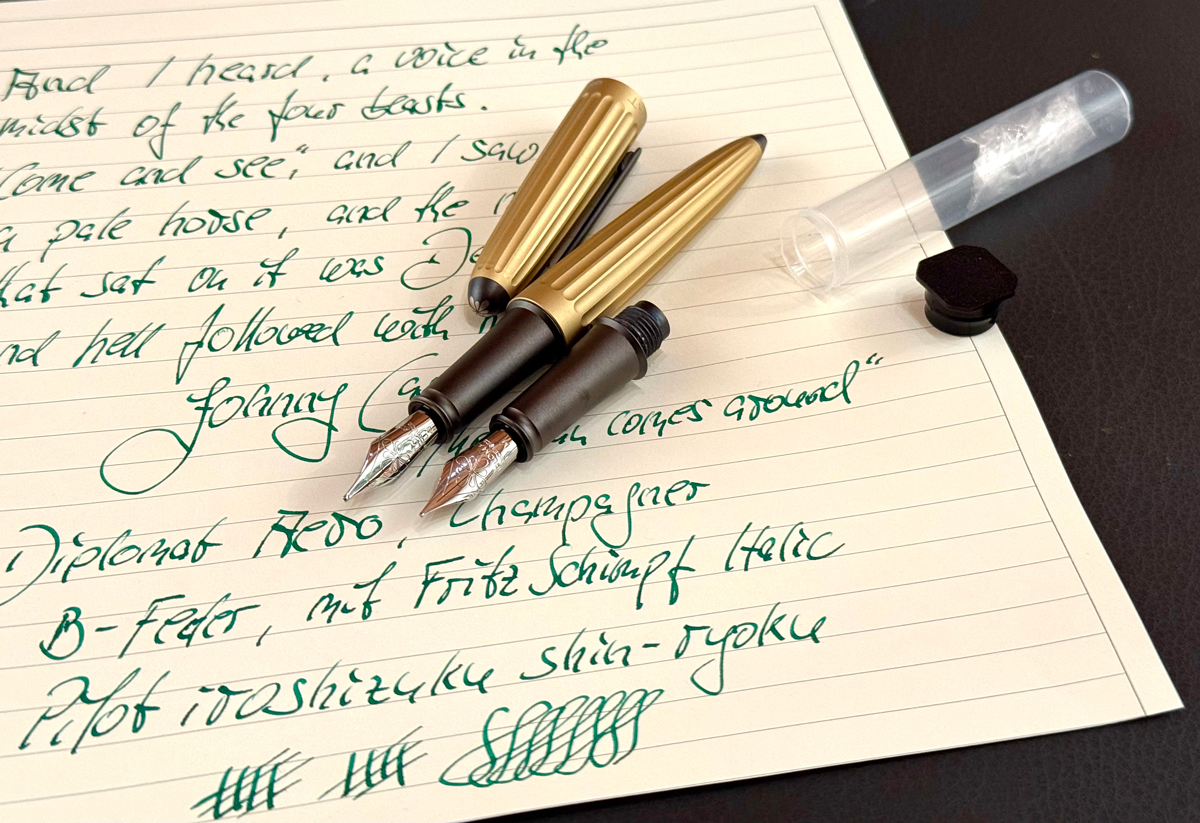 And I heard, a voice in the
midst of the four beasts.
Come and see," and I saw
a pale horse, and the
that sat on it was
and hell followed with
Johnny
comes around"
Diplomat Aero, Champagner
B-Feder, mit Fritz Schimpf Italic
Pilot iroshizuku shin-ryoku